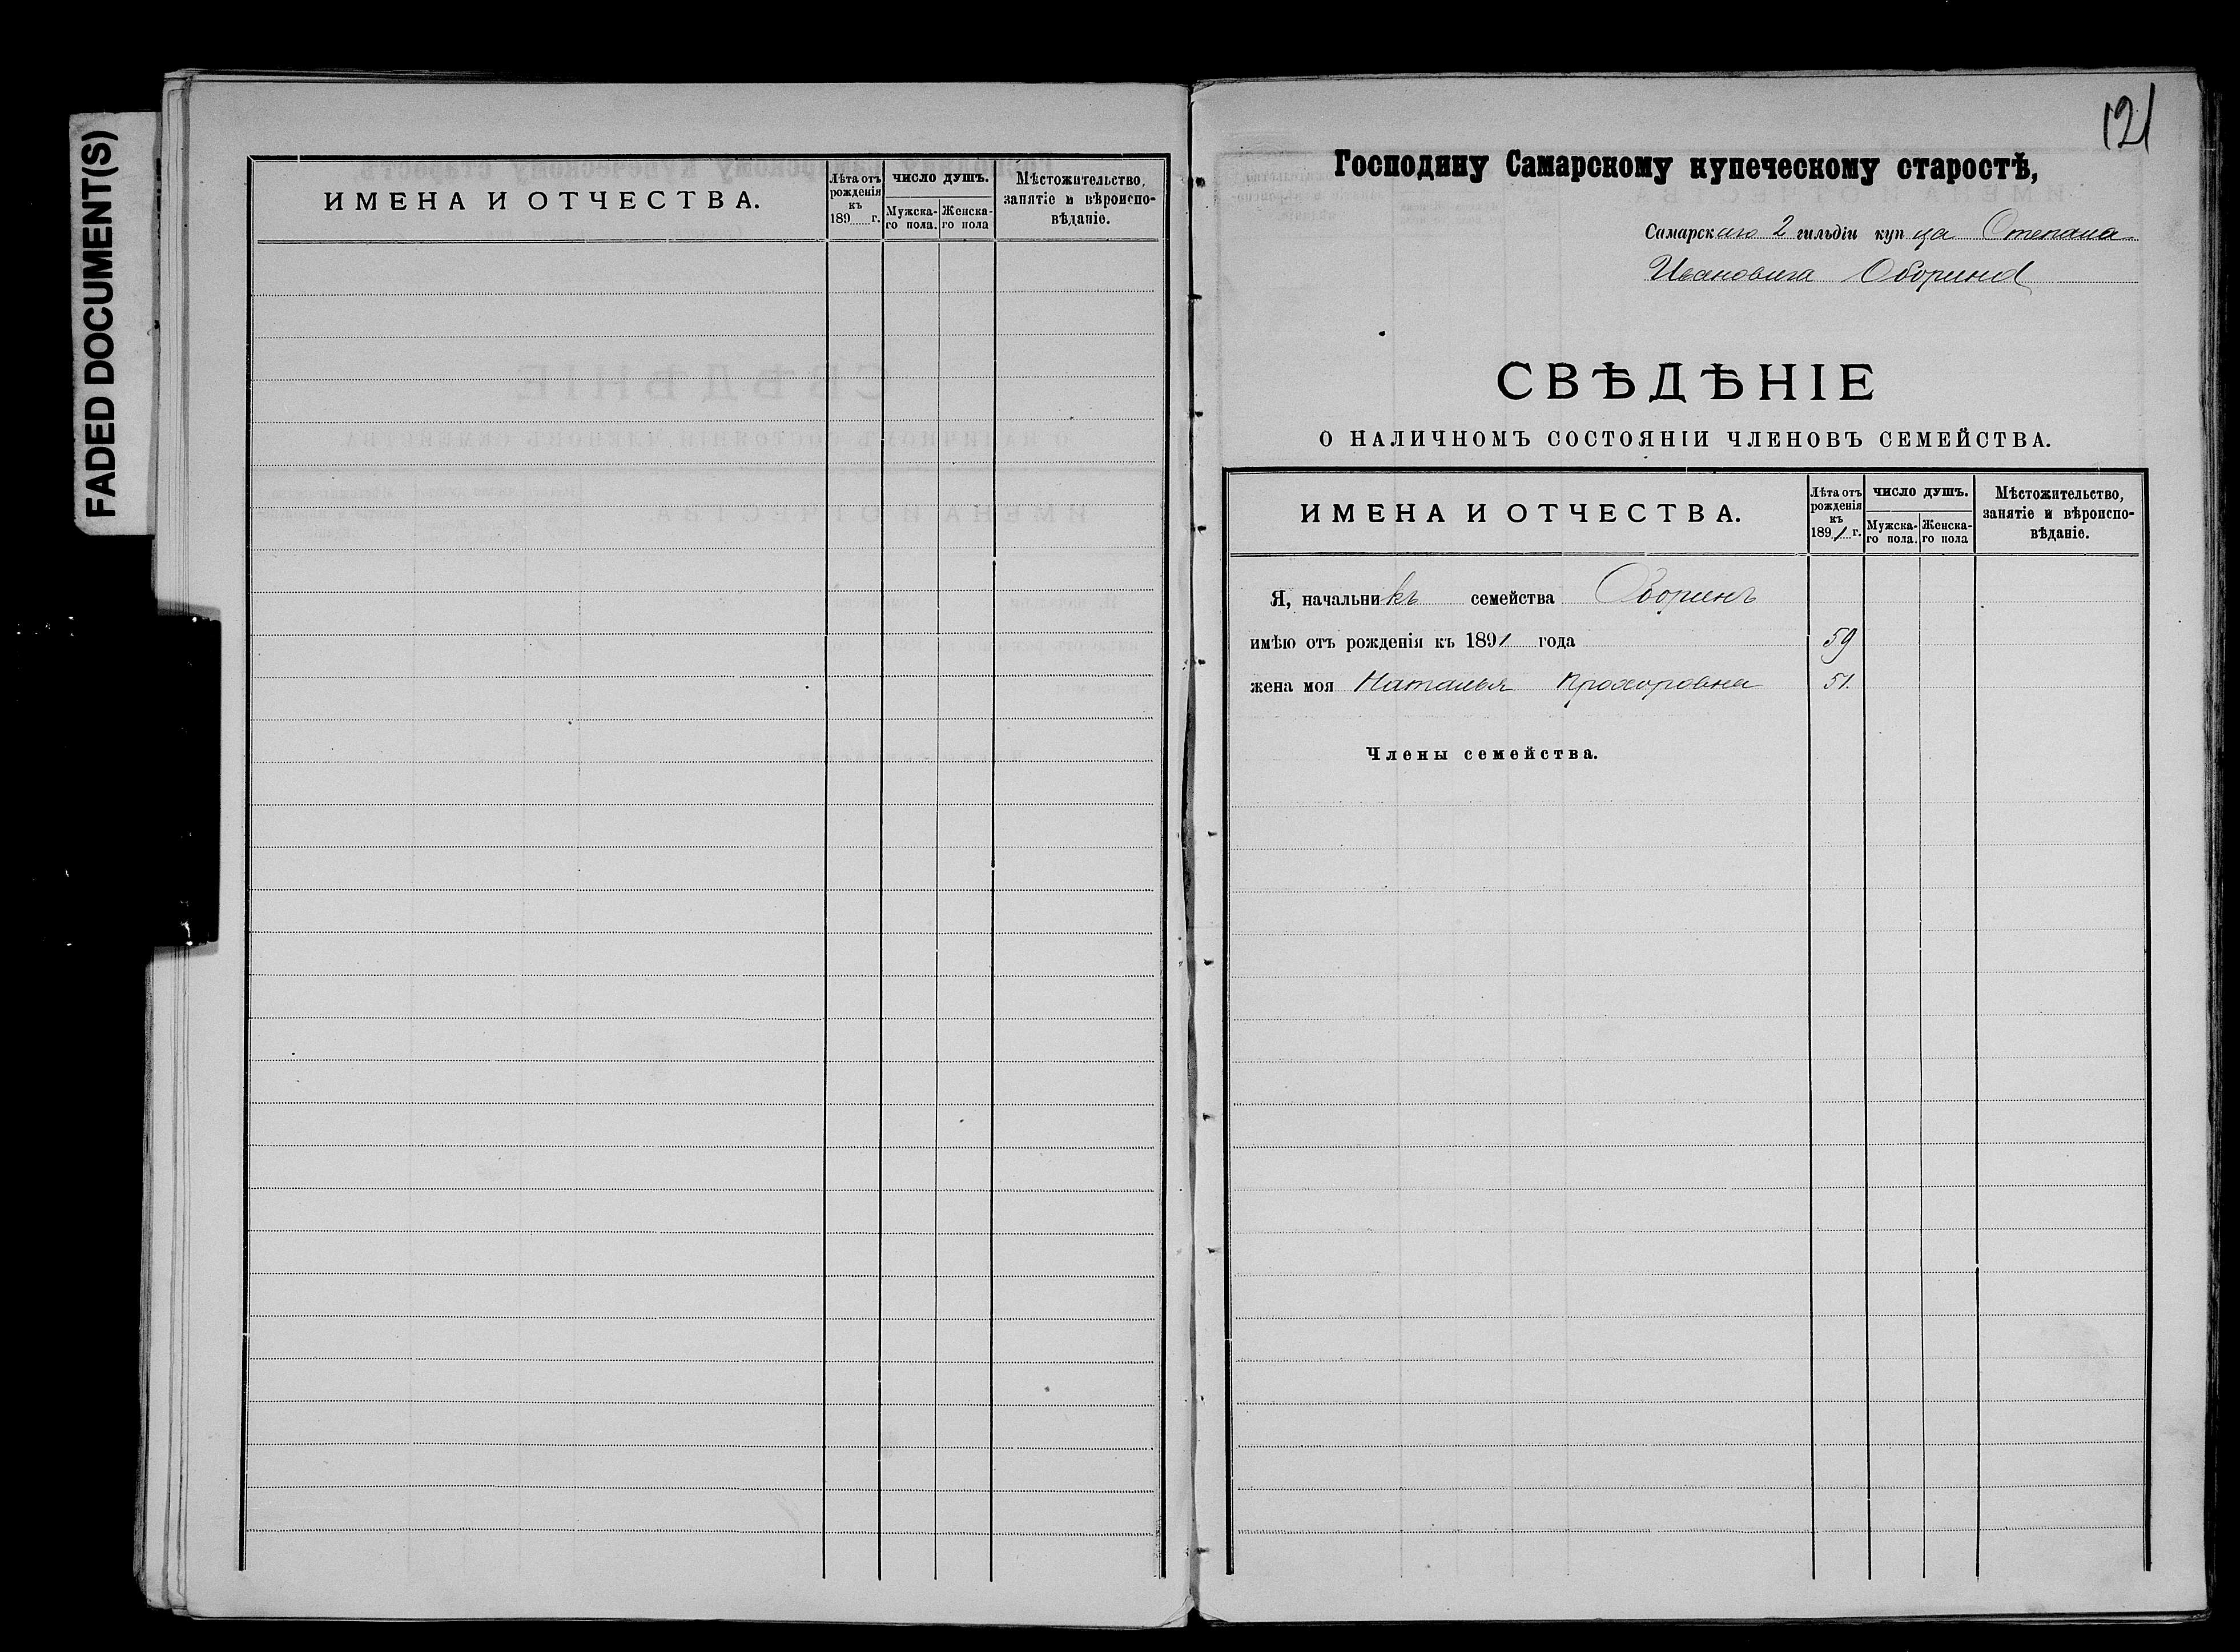 FADED DOCUMENT(S)
ИМЕНА И ОТЧЕСТВА.
Лѣта отъ
рожденія
къ
189 г.
число душъ.
Мужска-
го пола.
Женска-
го пола
Мѣстожительство,
занятіе и вѣроиспо-
вѣданіе.
121
Господину Самарскому купеческому старостѣ,
Самарскаго 2 гильдіи купца Степана
Ивановича Оборина
СВѢДѢНІЕ
О НАЛИЧНОМЪ СОСТОЯНІИ ЧЛЕНОВЪ СЕМЕЙСТВА.
ИМЕНА И ОТЧЕСТВА.
Лѣта отъ
рожденія
къ
1891 г.
число душъ.
Мужска-
го пола.
Женска-
го пола
Мѣстожительство,
занятіе и вѣроиспо-
вѣданіе.
Я, начальникъ семейства Оборинъ
имѣю отъ рожденія къ 1891 года 59
жена моя Наталья Прохоровна 51.
Члены семейства.